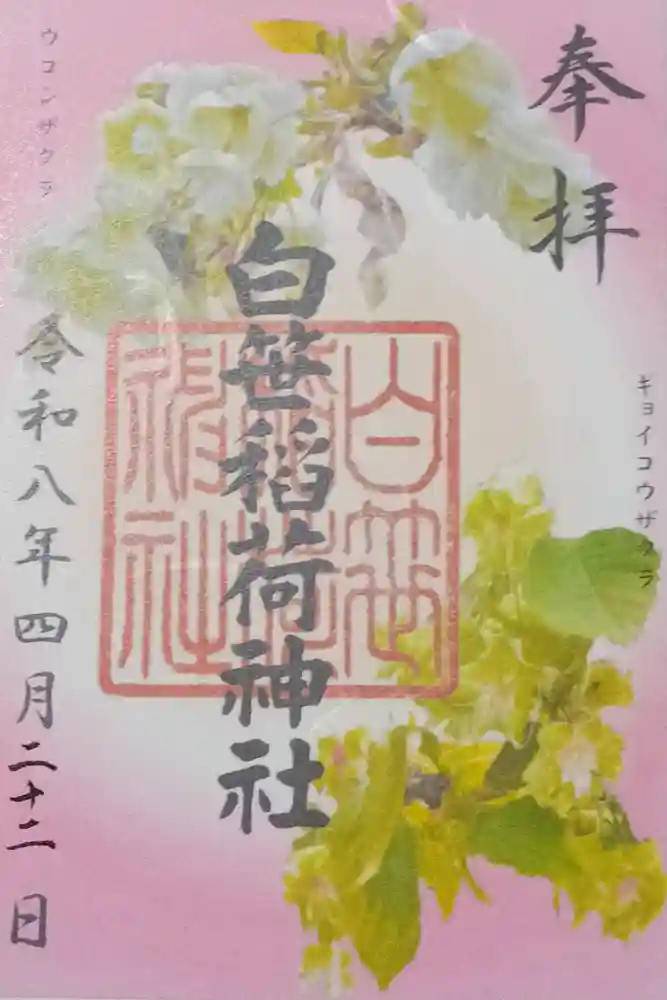 奉拝
キョイコウザクラ
白笹稲荷神社
白笹稲荷神社
令和八年四月二十二日
ウコンザクラ